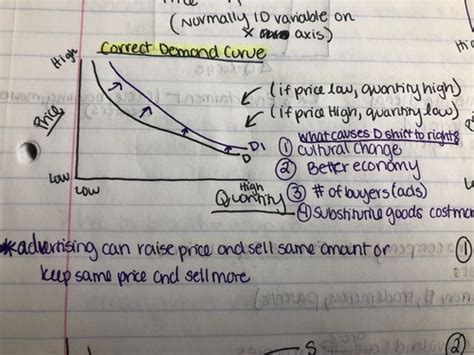 (Normally ID variable on
x axis)
Correct Demand Curve
High
Price
Low
(if price low, quantity high)
(if price High, quantity low)
What causes D shift to right?
① cultural change
② Better economy
③ # of buyers (ads)
④ substitutive goods cost
D1
D
Low
High
Quantity
*advertising can raise price and sell same amount or
keep same price and sell more
①
②
S